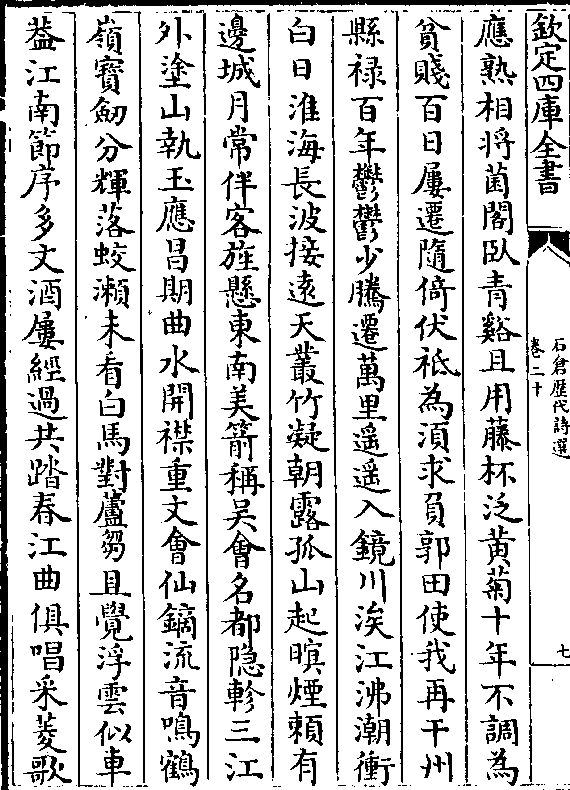 欽定四庫全書
石倉歷代詩選
卷二十
七
應熟相將菌閣臥青谿且用藤杯泛黄菊十年不調為
貧賤百日屢遷隨倚伏祗為湏求負郭田使我再干州
縣禄百年鬱鬱少騰遷萬里遥遥入鏡川涘江沸潮衝
白日淮海長波接逺天叢竹凝朝露孤山起暝煙賴有
邊城月常伴客旌懸東南美箭稱吳會名都隐軫三江
外塗山執玉應昌期曲水開襟重文會仙鏑流音鳴鶴
嶺寶劒分輝落蛟瀬未看白馬對蘆芻且覺浮雲似車
葢江南節序多文酒屢經過共踏春江曲俱唱采菱歌